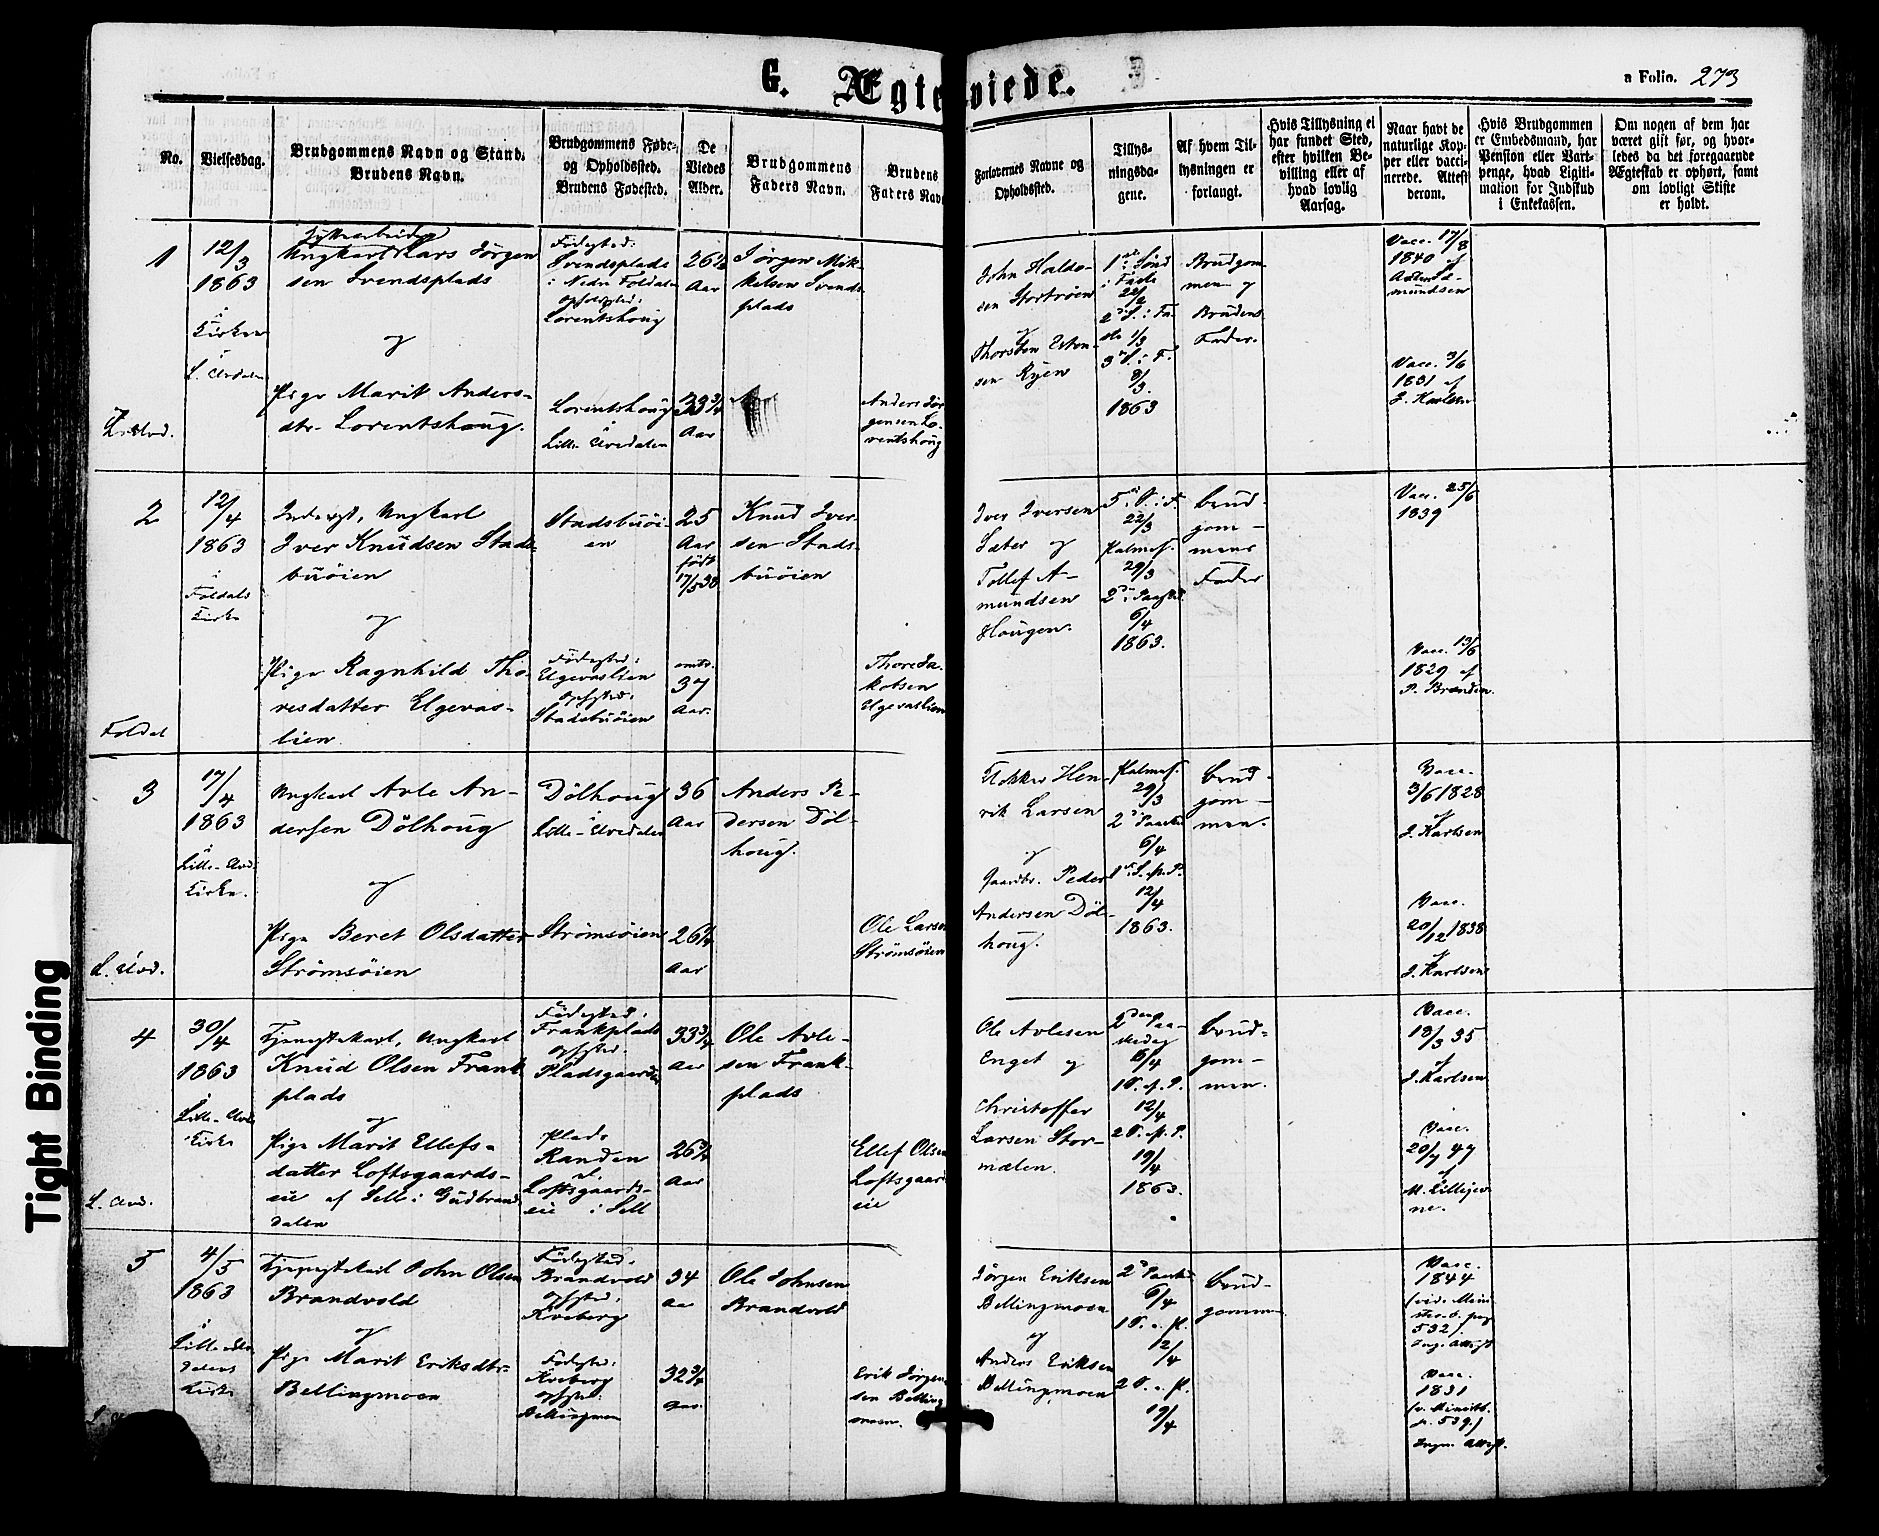 G. Ægteviede.
a Folio. 273
No.
Vielsesdag.
Brudgommens Navn og Stand.
Brudens Navn.
Brudgommens Føde-
og Opholdssted.
Brudens Fødested.
De
Viedes
Alder.
Brudgommens
Faders Navn.
Brudens
Faders Navn
Forlovernes Navne og
Opholdssted.
Tillys-
ningsda-
gene.
Af hvem Til-
lysningen er
forlangt.
Hvis Tillysning ei
har fundet Sted,
efter hvilken Be-
villing eller af
hvad lovlig
Aarsag.
Naar havt de
naturlige Kop-
per eller vacci-
nerede. Attest
derom.
Hvis Brudgommen
er Embedsmand, har
Pension eller Vart-
penge, hvad Legiti-
mation for Indskud
i Enkekassen.
Om nogen af dem har
været gift før, og hvor-
ledes da det foregaaende
Ægteskab er ophørt, samt
om lovligt Skifte
er holdt.
1
12/3
1863
i
Kirken
L. Elvdalen
Ungkarl Lars Jørgen-
sen Svendsplads
og
Pige Marit Anders-
dtr. Lorentshoug.
Fødested:
Svendsplads
i Nedre Foldalen
Opholdssted:
Lorentshoug
Lorentshoug
i
Lille Elvedalen
26½
Aar
33¾
Aar
Jørgen Mik-
kelsen Svends-
plads
Anders Jør-
gensen Lo-
rentshoug
John Haldo-
sen Stortrøen
og
Thorsten Esten-
sen Ryen
1ste Sønd
i Faste
22/2
2d S. i Fa-
ste 1/3
3d S. i F.
8/3.
1863
Brudgom-
men og
Brudens
Fader.
Vacc. 17/8
1840 af
Amundsen
Vacc. 3/6
1831 af
J. Karlsen
2
12/4
1863
i
Foldals
Kirke
Foldal
Inderst, Ungkarl
Iver Knudsen Stads-
buøien
og
Pige Ragnhild Tho-
resdatter Elgevas-
lien
Stadsbuøi-
en
Fødested:
Elgevaslien
Opholdssted:
Stadsbuøien
25
Aar
født
17/5 38
omtr.
37
Aar.
Knud Iver-
sen Stads-
buøien
Thore Ja-
kobsen
Elgevaslien
Iver Iversen
Sæter og
Tollef A-
mundsen
Hougen.
5te S. i F.
22/3
Palmes.
29/3
2d Paaskd.
6/4
1863.
Brud-
gom-
mens
Fader
Vacc. 25/6
1839
Vacc. 13/6
1829 af
P. Brænden
3
17/4
1863
i
Lille-Elvd.
Kirke.
L. Elvd.
Ungkarl Avle An-
dersen Dölhoug
og
Pige Beret Olsdatter
Strömsöien
Dölhoug
i
Lille-Elvedalen
Strömsöien
36
Aar
26¼
Aar
Anders Pe-
dersen Döl-
houg.
Ole Larsen
Strömsöien
Henrik Larsen
og
Gaardbr. Peder
Andersen Döl-
houg.
Palmes.
29/3
2d Paaskd
6/4
1ste S. p. P.
12/4
1863.
Brud-
gom-
men.
Vacc.
3/6 1828
af
J. Karlsen
Vacc.
20/12 1838
af
J. Karlsen
4
30/4
1863
i
Lille-Elvd.
Kirke
L. Elvd.
Tjenestekarl, Ungkarl
Knud Olsen Frank-
plads
og
Pige Marit Ellefs-
datter Loftsgaards-
eie af Sell i Gudbrands-
dalen
Födested:
Frankplads
Opholdssted:
Pladsgaarden
Plads
Randen
u.
Loftsgaards-
eie i Sell
33¾
Aar
26¾
Aar
Ole Avle-
sen Frank-
plads
Ellef Olsen
Loftsgaards-
eie
Ole Avlesen
Enget og
Christoffer
Larsen Stor-
mælen.
2den Paa-
skedag
6/4
1 S. e. P.
12/4
2 S. e. P.
19/4
1863.
Brud-
gom-
men.
Vacc.
18/3 35
af
J. Karlsen
Vacc.
20/7 47
af
M. Lillejev-
ne.
5
4/5
1863
i
Lille Elve-
dalens
Kirke
Tjenestekarl John Olsen
Brandvold
og
Pige Marit Eriksdtr.
Bellingmoen
Födested:
Brandvold
Opholdssted:
Kveberg
Födested:
Kveberg
Opholdssted:
Bellingmoen
34
Aar
32¾
Aar
Ole Johnsen
Brandvold
Erik Jörgen-
sen Belling-
moen.
Jörgen Eriksen
Bellingmoen
og
Anders Eriksen
Bellingmoen
2d Paaskd
6/4
1 S. e. P.
12/4
2 S. e. P.
19/4
Brud-
gommen
Vacc.
1844
(vide Mini-
ster.b. pag
532)
Ing. Attest
Vacc.
1831
(v. Ministb.
p. 539.)
Ingen Attest.
Tight Binding